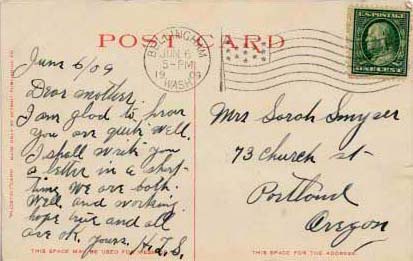 POST CARD
BELLINGHAM
JUN 6
5-PM
1909
WASH.
U.S. POSTAGE
ONE CENT
June 6/09
Dear mother.
I am glad to hear
you are quite well.
I shall write you
a letter in a short
time we are both
well and working
hope true and all
are ok. yours. H.T.S.
Mrs Sarah Smyser
73 Church st-
Portland
Oregon
THIS SPACE MAY BE USED FOR MESSAGE
THIS SPACE FOR THE ADDRESS.